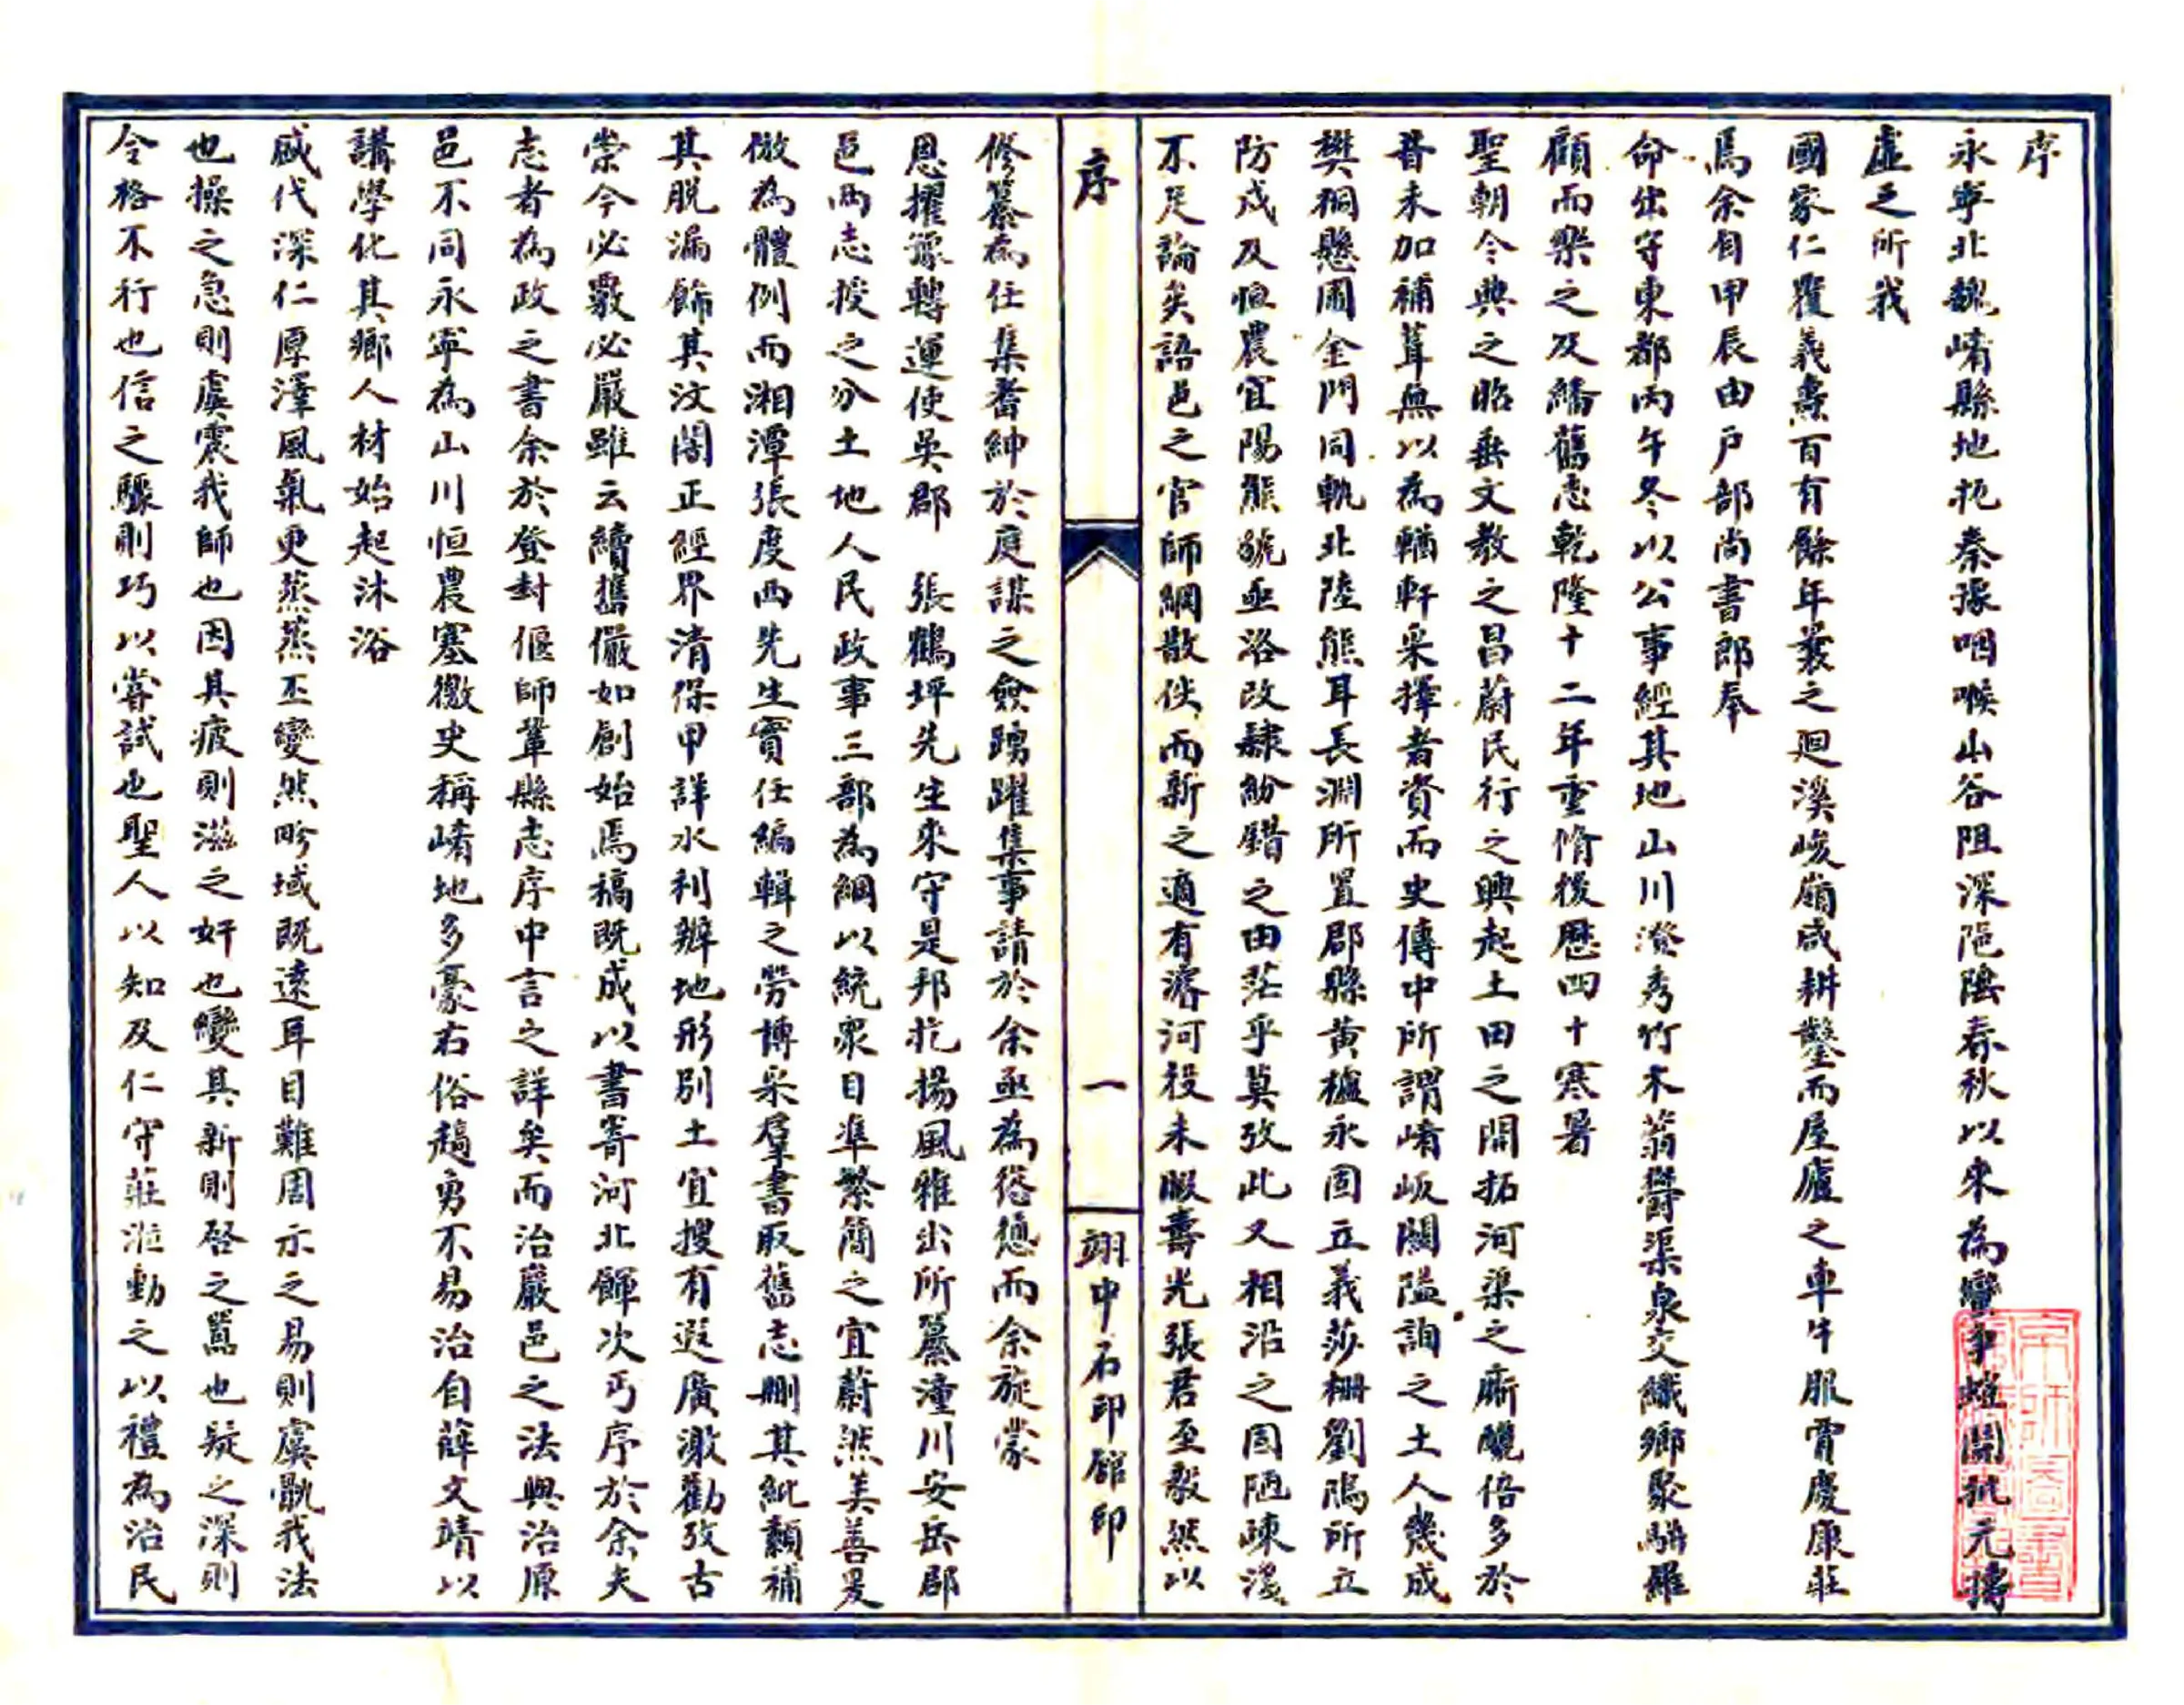 序
永寧北魏崤縣地扼秦豫咽喉山谷阻深阨隘春秋以來為蠻爭蟷鬬抗元擣
虛之所我
國家仁覆義燾百有餘年曩之廻溪峻崩咸耕鑿而屋廬之車牛服賈慶康莊
焉余自甲辰由户部尚書郎奉
命出守東都丙午冬以公事經其地山川澄秀竹木蓊欝渠泉交織鄉聚駢羅
顧而樂之及繙舊志乾隆十二年重脩後歷四十寒暑
聖朝令典之昭垂文教之昌蔚民行之興起土田之開拓河渠之廝釃倍多於
昔未加補葺無以為輶軒采擇者資而史傳中所謂崤岅關隘詢之土人幾成
樊桐懸圃金門同軌北陸熊耳長淵所置郡縣黄櫨永固立義莎柵劉鴅所立
防戍及恒農宜陽熊虢亟洛改隸紛錯之由茫乎莫攷此又相沿之固陋疎漏
不足論矣語邑之官師綱散佚而新之適有濬河役未暇壽光張君至毅然以
序
一
翊中石印館印
修纂為任集耆紳於庭謀之僉踴躍集事請於余亟為慫慂而余旋蒙
恩擢豫轉運使吳郡 張鶴坪先生來守是邦扢揚風雅出所纂潼川安岳郡
邑兩志授之分土地人民政事三部為綱以統衆目準繁簡之宜蔚然美善爰
倣為體例而湘潭張度西先生實任編輯之勞博采羣書取舊志删其紕纇補
其脱漏飾其汶闇正經界清保甲詳水利辨地形别土宜搜有遐廣激勸攷古
崇今必覈必嚴雖云續舊儼如創始焉稿既成以書寄河北餫次丐序於余夫
志者為政之書余於登封偃師鞏縣志序中言之詳矣而治嚴邑之法與治原
邑不同永寧為山川恒農塞徼史稱崤地多豪右俗趫勇不易治自薛文靖以
講學化其鄉人材始起沐浴
盛代深仁厚澤風氣更蒸蒸丕變然畛域既遠耳目難周示之易則虞骫我法
也操之急則虞震我師也因其疲則滋之奸也變其新則啓之嚚也疑之深則
令格不行也信之驟則巧以嘗試也聖人以知及仁守莊涖動之以禮為治民